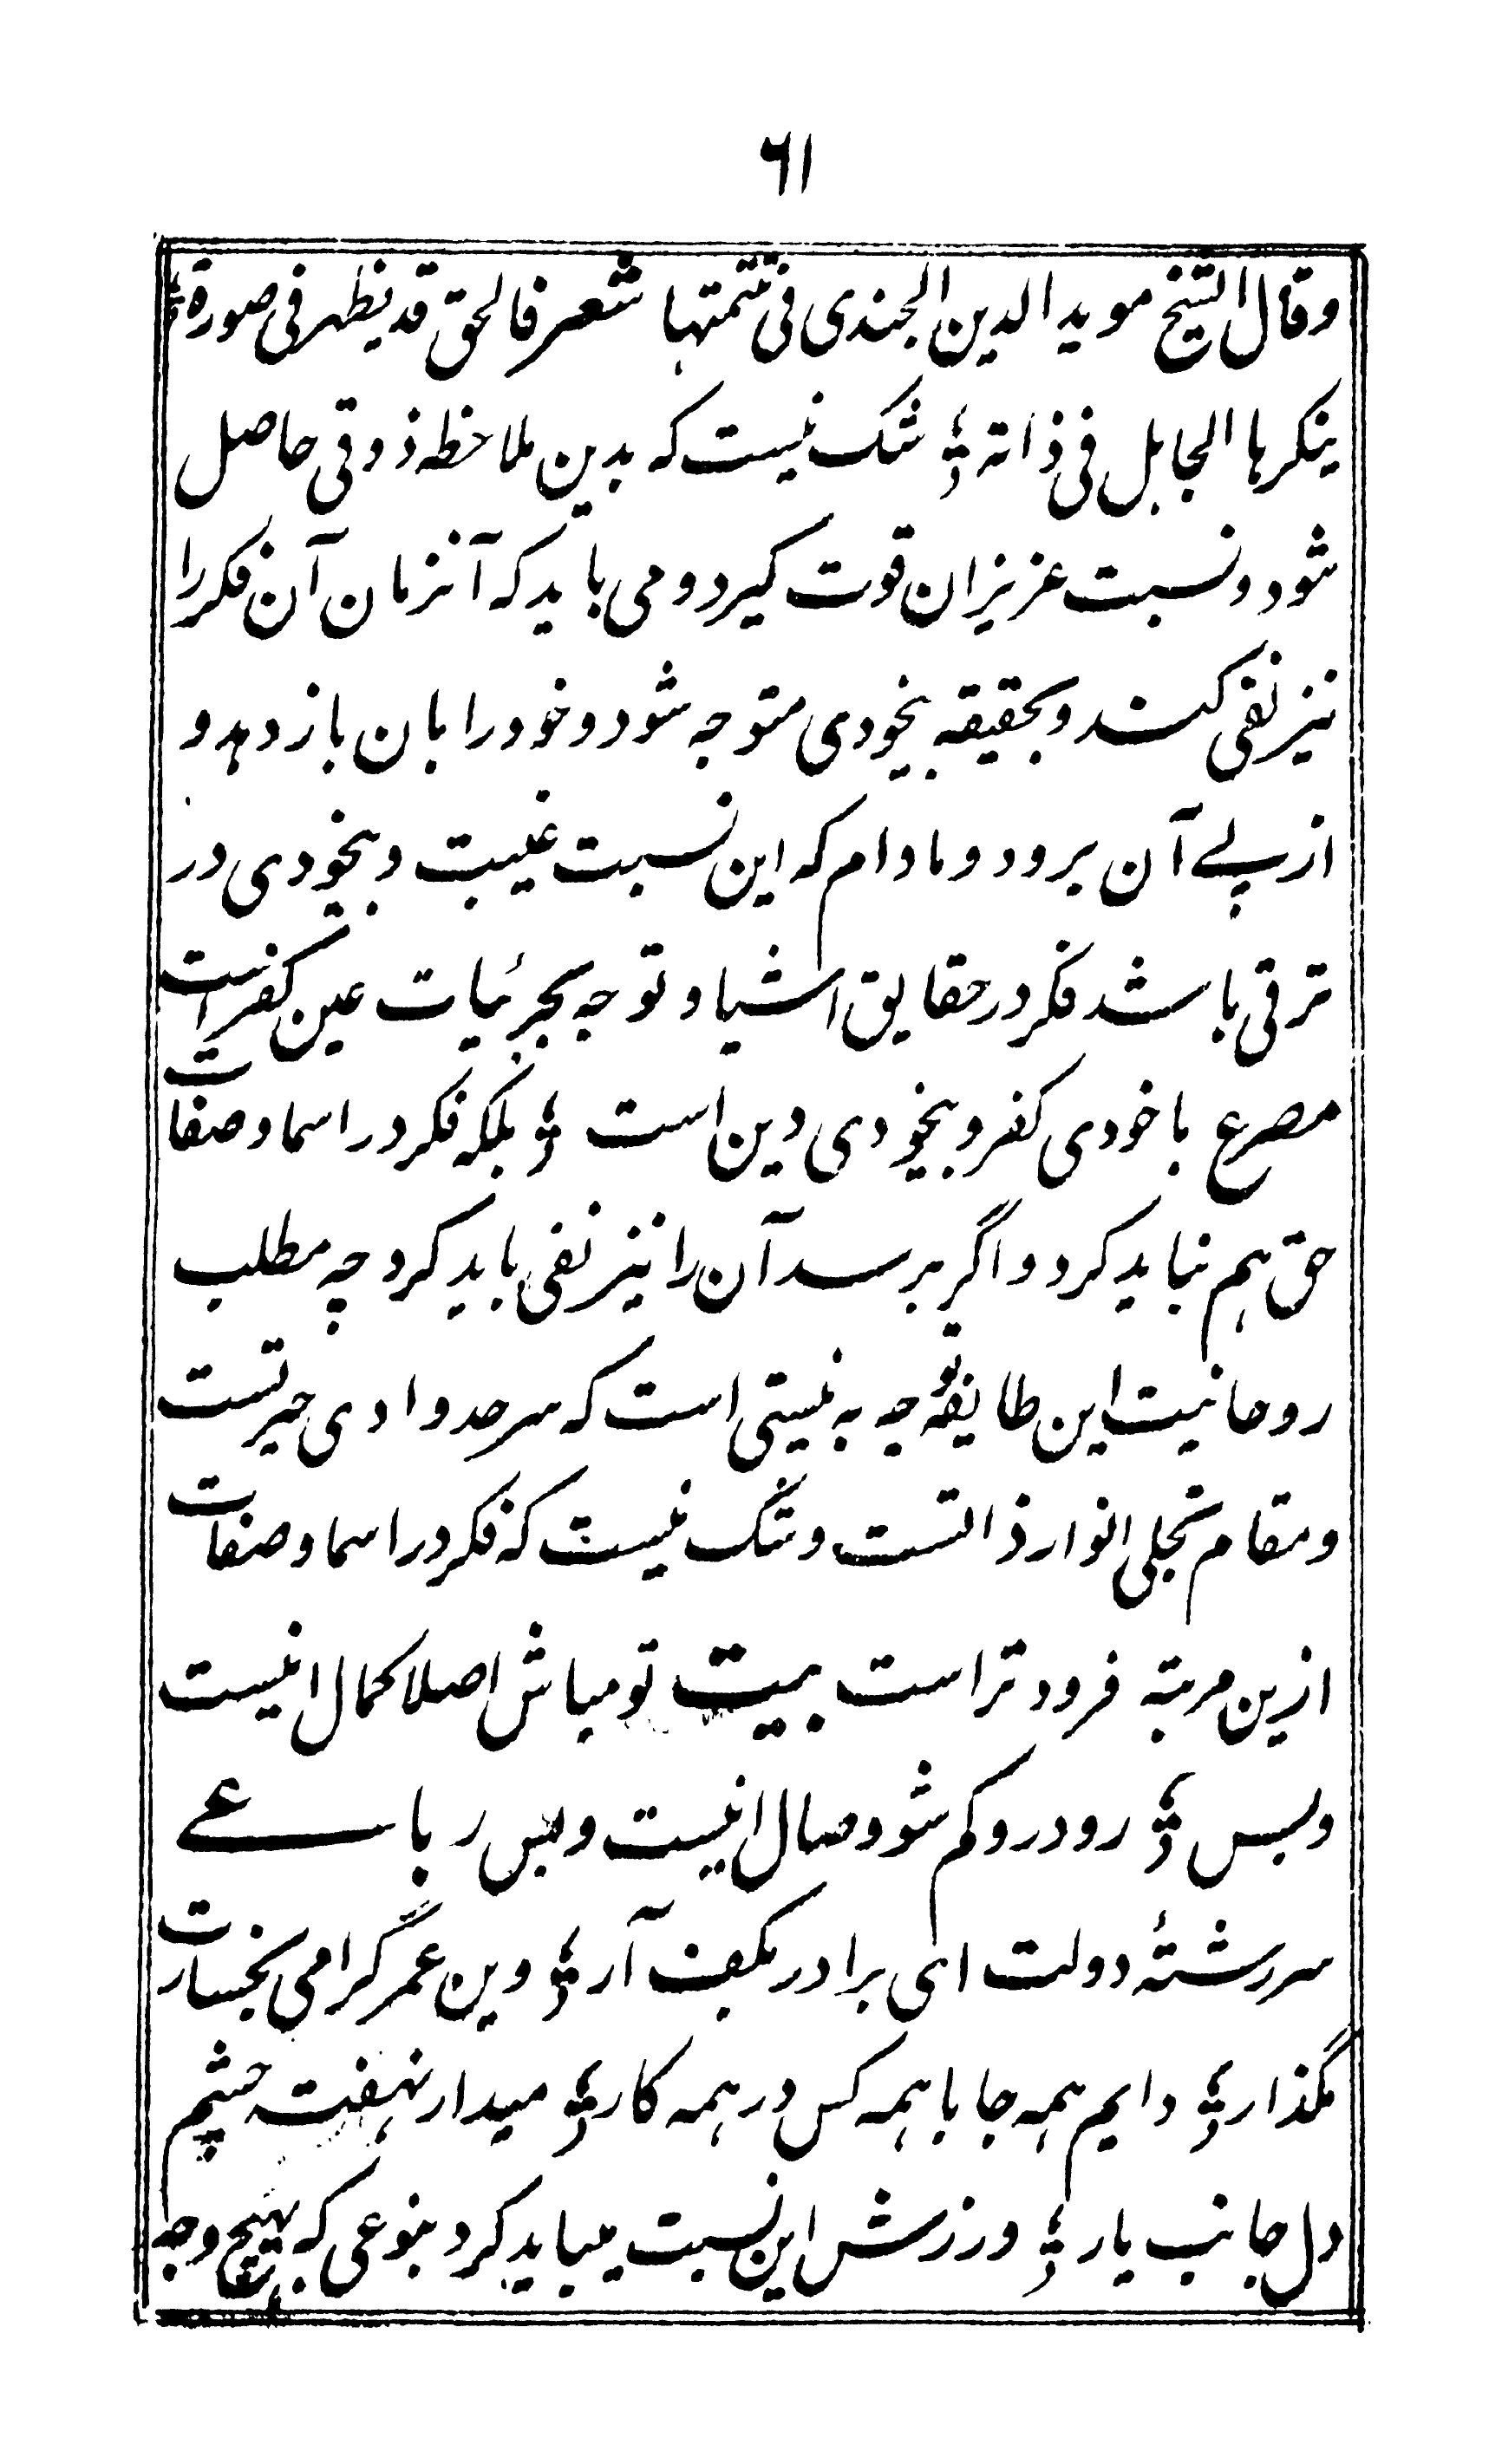 ٦١
وقال الشیخ موید الدین الجندی فی تتمتها شعر فالحق قد یظهر فی صورة ؛
ینکرها الجاهل فی ذاته ؛ شک نیست که بدین ملاحظه ذوقی حاصل
شود و نسبت عزیزان قوت گیرد و می باید که آنزمان آن فکر را
نیز نفی کند و بحقیقه بیخودی متوجه شود و خود را بان باز دهد و
از پے آن برود و مادام که این نسبت غیبت و بیخودی در
ترقی باشد فکر در حقایق اشیا و توجه بجزئیات عین کفر است
مصرع با خودی کفر و بیخودی دین است ؛ بلکه فکر در اسما و صفات
حق هم نباید کرد و اگر برسد آن را نیز نفی باید کرد چه مطلب
روحانیت این طایفه توجه به نیستی است که سرحد وادی حیرتست
و مقام تجلی انوار ذاتست و شک نیست که فکر در اسما و صفات
ازین مرتبه فرود تر است بیت تو مباش اصلا کمال اینست
و بس ؛ رو درو گم شو وصال اینست و بس رباعے
سر رشتهٔ دولت ای برادر بکف آر ؛ وین عمر گرامی بخسارت
مگذار ؛ دایم همه جا با همه کس در همه کار ؛ میدار نهفته چشم
دل جانب یار ؛ ورزش این نسبت میباید کرد بنوعی که بهیچ وجه